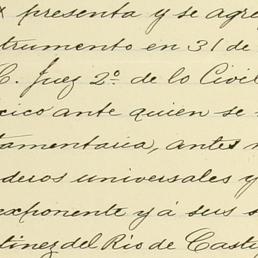 presenta y se agre
trumento en 31 de
C. Juez 2º de lo Civil
xico ante quien se
tamentaria, antes
deros universales y
exponente y á sus s
tinez del Rio de Casti